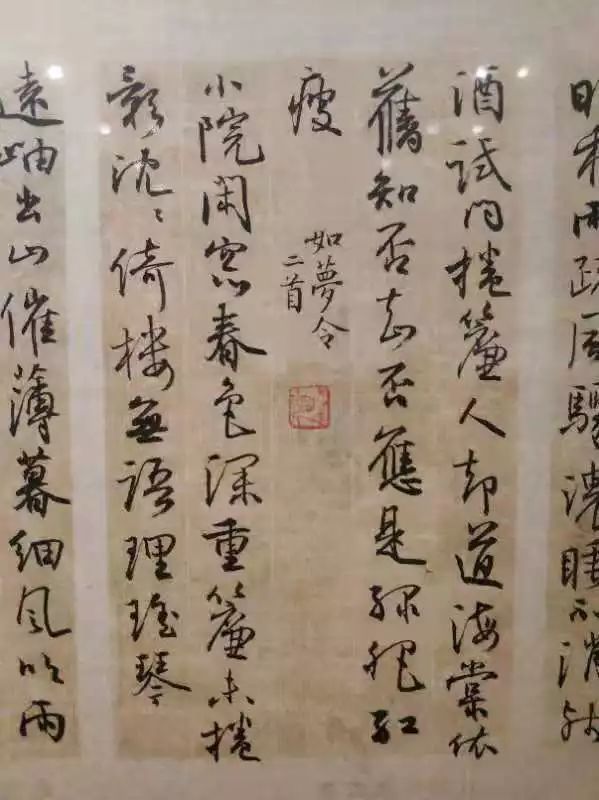 昨夜雨疏風驟濃睡不消殘
酒試問捲簾人却道海棠依
舊知否知否應是綠肥紅
瘦
如夢令
二首
小院閑窓春色深重簾未捲
影沈〻倚樓無語理瑤琴
遠岫出山催薄暮細風吹雨